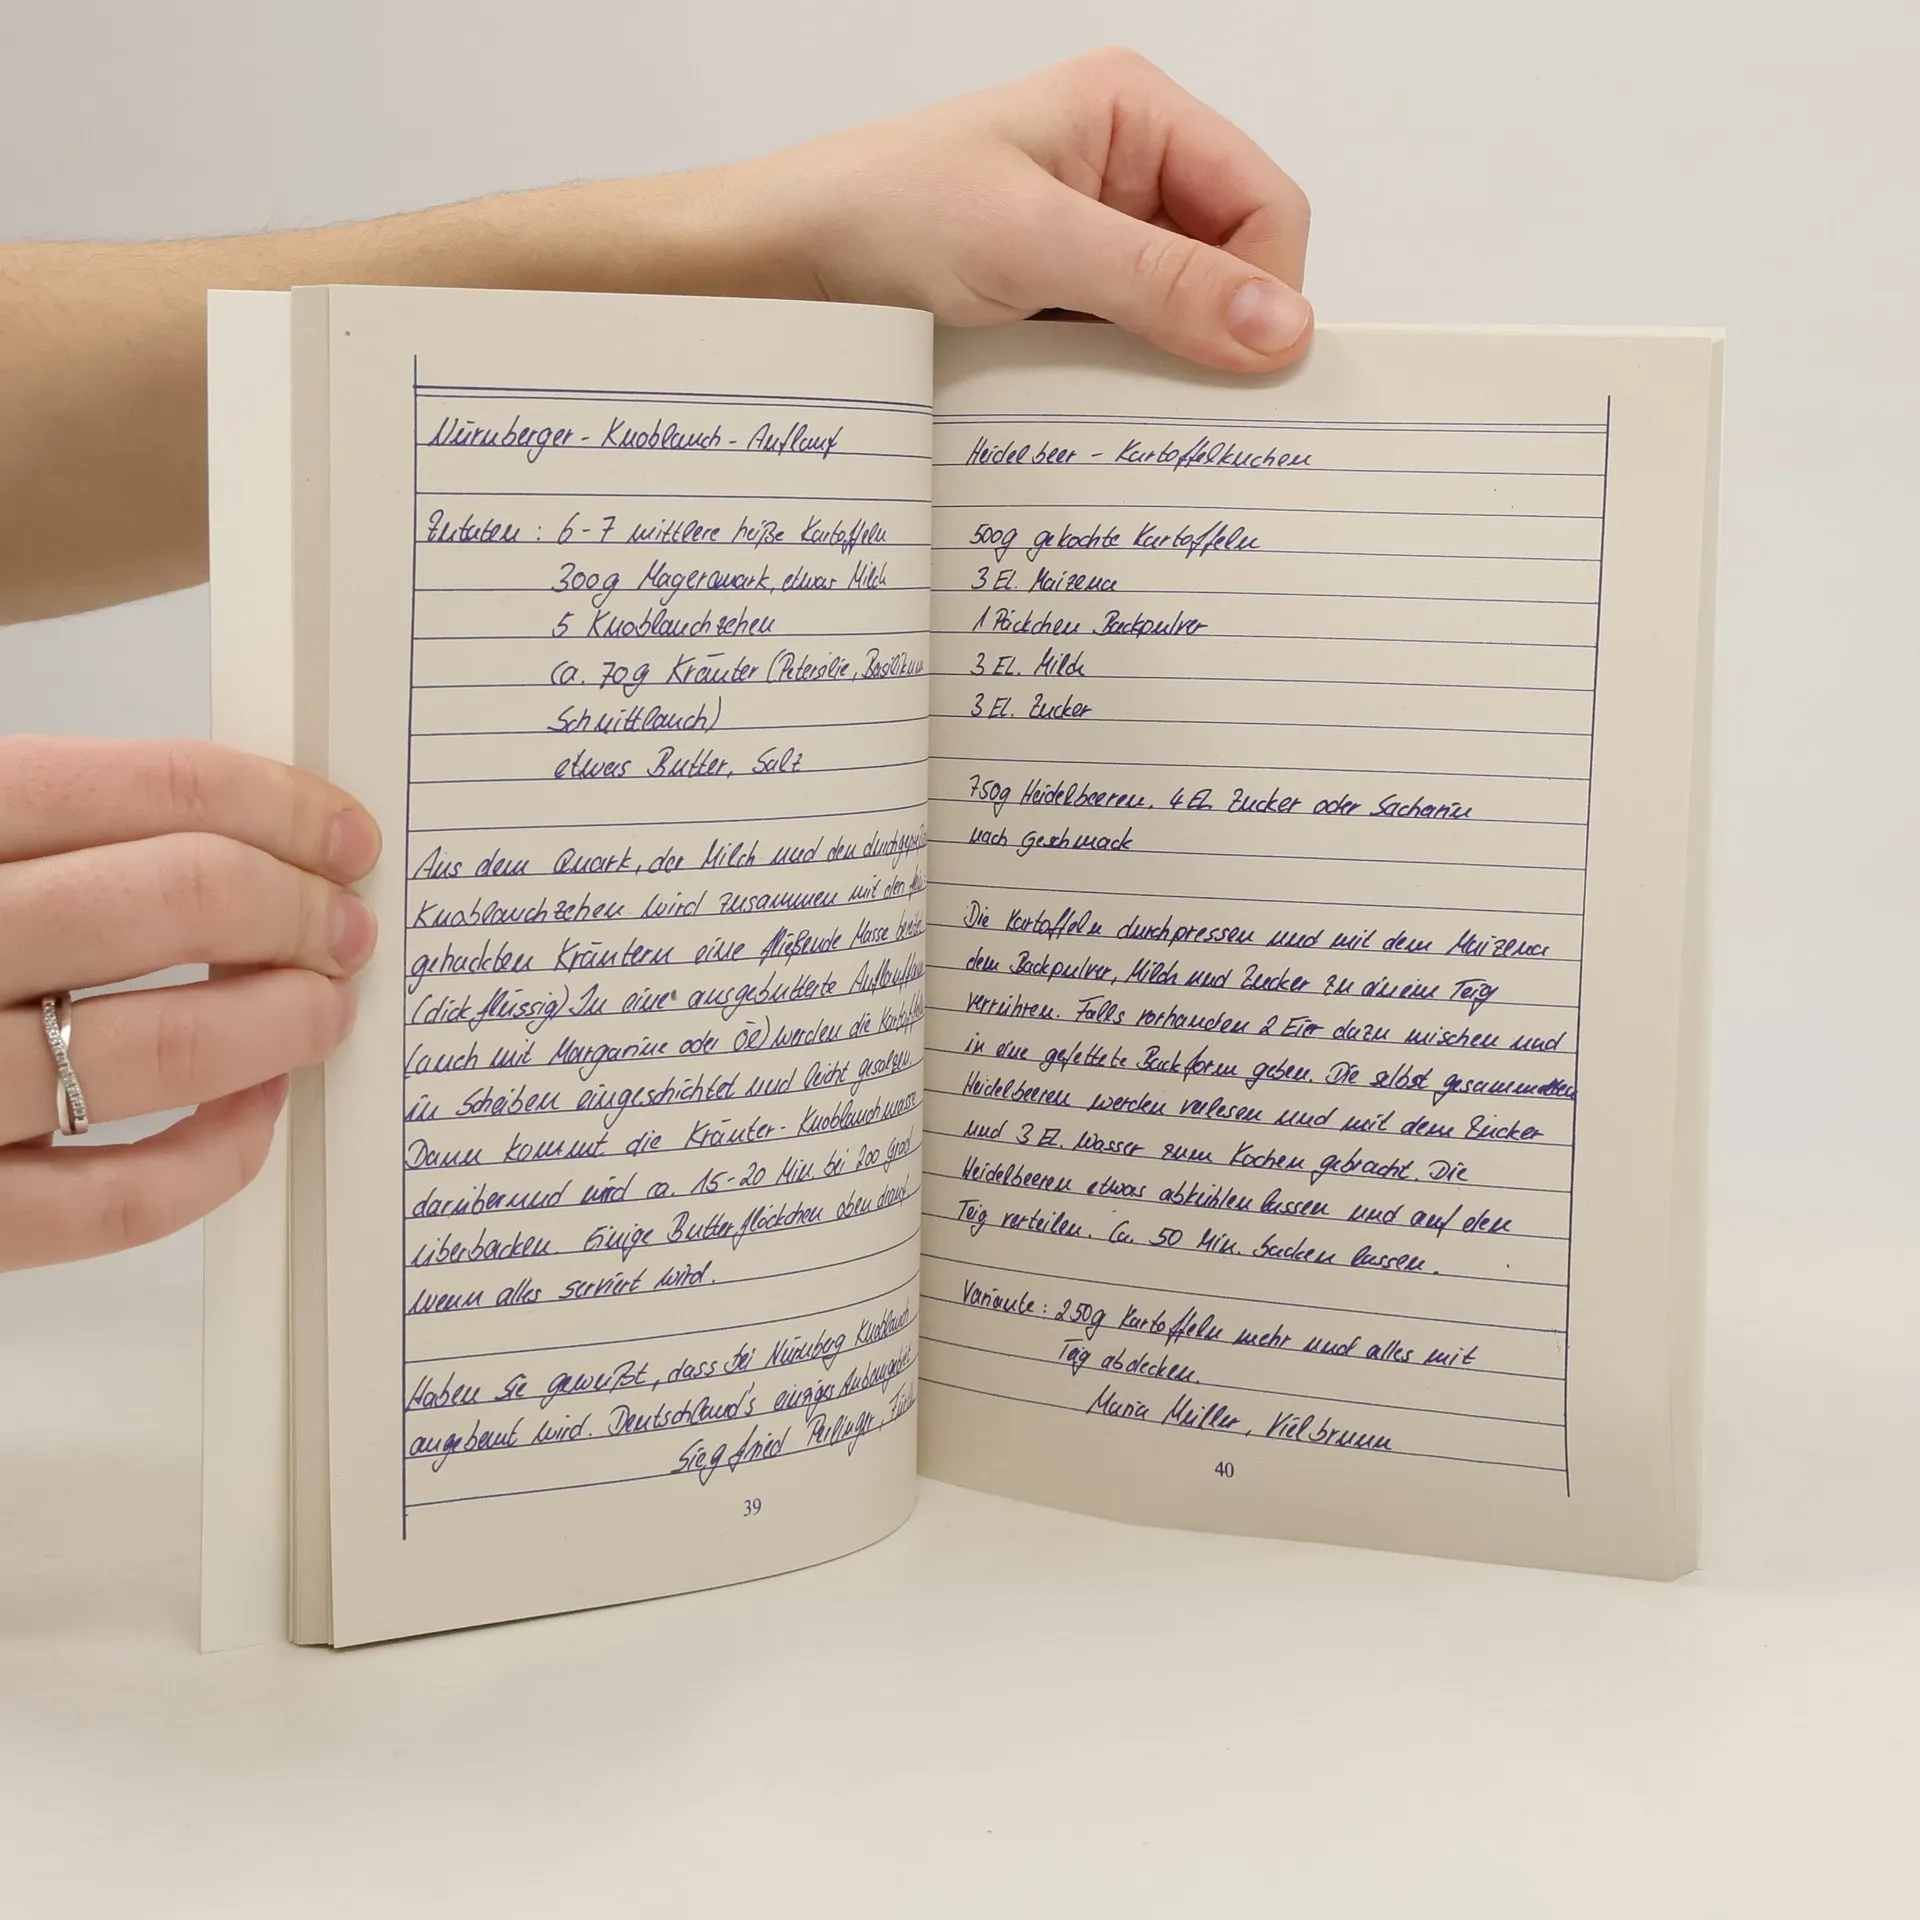 Nürnberger-Knoblauch-Auflauf
Zutaten: 6-7 mittlere heiße Kartoffeln
300g Magerquark, etwas Milch
5 Knoblauchzehen
Ca. 70g Kräuter (Petersilie, Basilikum
Schnittlauch)
etwas Butter, Salz
Aus dem Quark, der Milch und den
Knoblauchzehen wird zusammen mit den
gehackten Kräutern eine fließende Masse bereitet
(dickflüssig) In eine ausgebutterte Auflaufform
(auch mit Margarine oder Öl) werden die Kartoffeln
in Scheiben eingeschichtet und leicht gesalzen.
Dann kommt die Kräuter-Knoblauchmasse
darüber und wird ca. 15-20 Min. bei 200 Grad
überbacken. Einige Butterflöckchen oben drauf
wenn alles serviert wird.
Haben Sie gewußt, dass bei Nürnberg Knoblauch
angebaut wird. Deutschland's einziges Anbaugebiet
Siegfried Peilinger,
39
Heidelbeer - Kartoffelkuchen
500g gekochte Kartoffeln
3 EL. Maizena
1 Päckchen Backpulver
3 EL. Milch
3 EL. Zucker
750g Heidelbeeren, 4 EL Zucker oder Sacharin
nach Geschmack
Die Kartoffeln durchpressen und mit dem Maizena
dem Backpulver, Milch und Zucker zu einem Teig
verrühren. Falls vorhanden 2 Eier dazu mischen und
in eine gefettete Backform geben. Die selbst gesammelten
Heidelbeeren werden verlesen und mit dem Zucker
und 3 EL. Wasser zum Kochen gebracht. Die
Heidelbeeren etwas abkühlen lassen und auf den
Teig verteilen. Ca. 50 Min. backen lassen.
Variante: 250g Kartoffeln mehr und alles mit
Teig abdecken.
Maria Müller, Vielbrunn
40